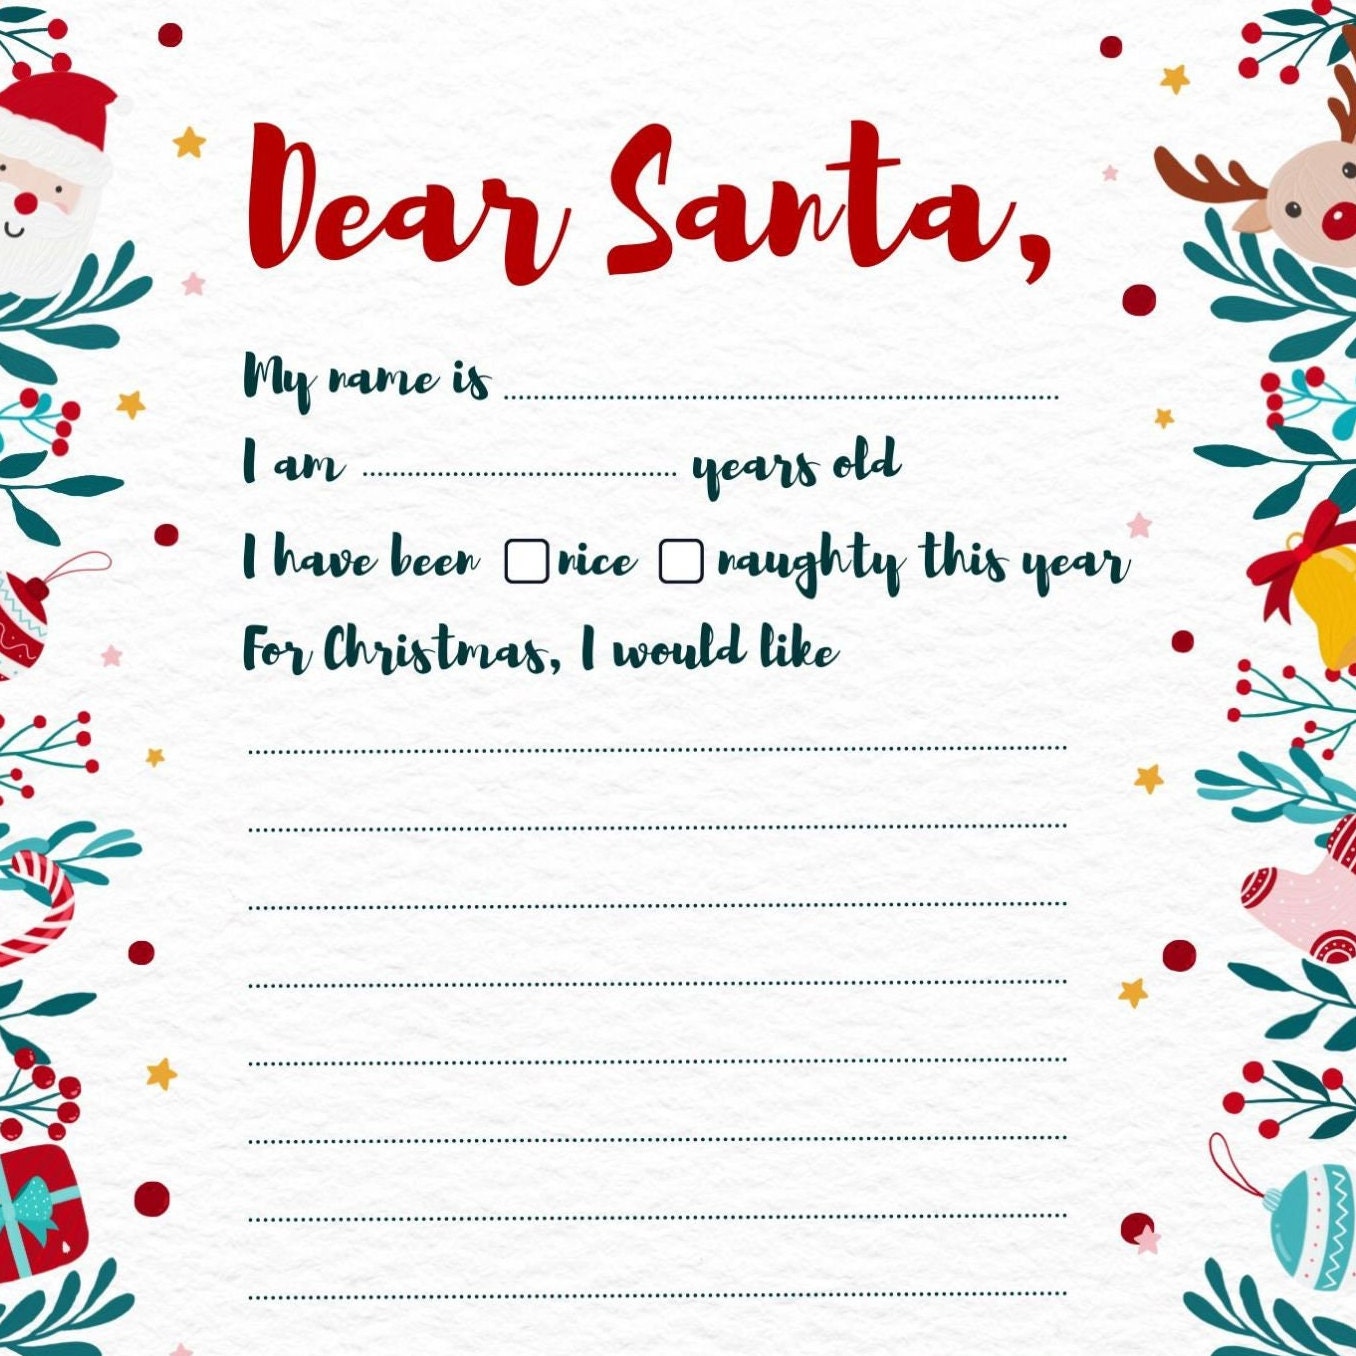 Dear Santa,
My name is
I am years old
I have been nice naughty this year
For Christmas, I would like